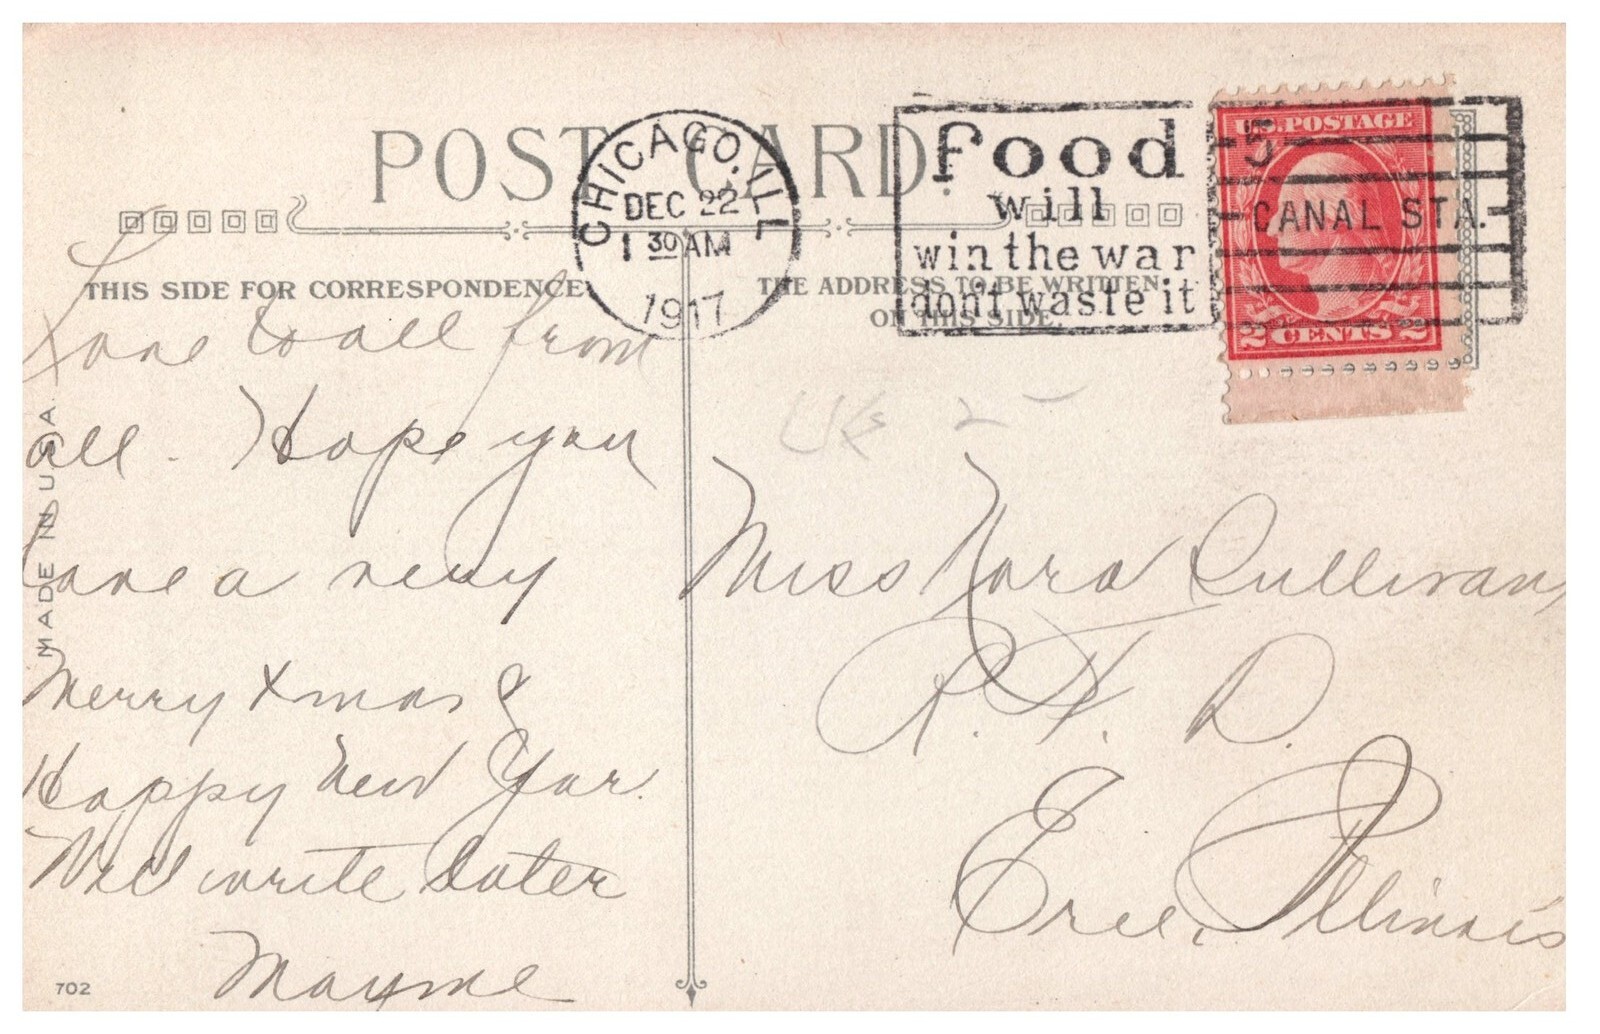 POST CARD.
CHICAGO, ILL
DEC 22
1 30 AM
1917
food
will
win the war
don't waste it
5
CANAL STA.
U.S. POSTAGE
2 CENTS 2
THIS SIDE FOR CORRESPONDENCE
THE ADDRESS TO BE WRITTEN
ON THIS SIDE.
MADE IN U.S.A.
Love to all from
all. Hope you
have a very
Merry Xmas &
Happy New Year.
Will write later
Mayme
Miss Nora Sullivan,
R. F. D.
Erie, Illinois
702